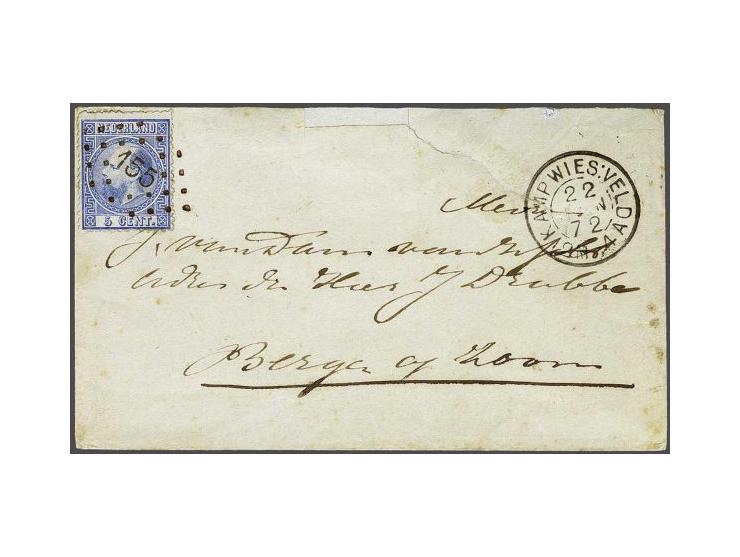 NEDERLAND
155
5 CENT.
KAMP WIES:VELD
22
72
Mevr
J. van Dam van
Adres den Heer J Drabbe
Bergen op Zoom